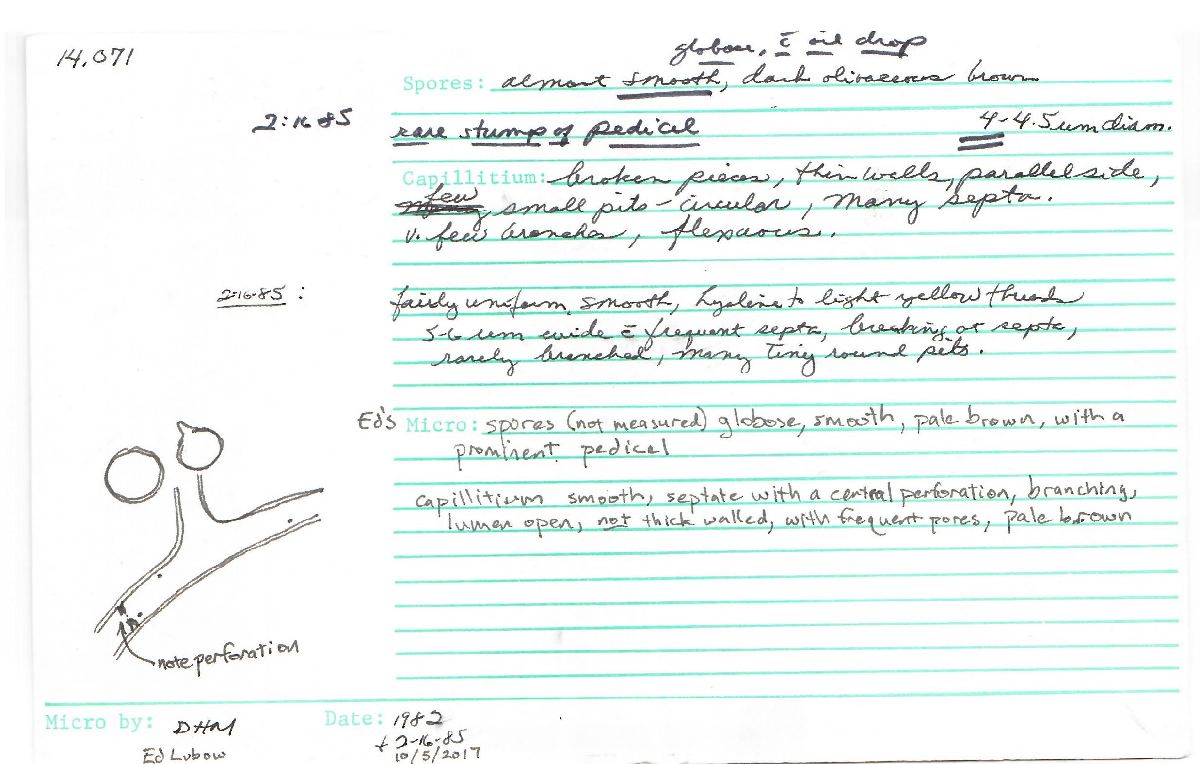 14,071
globose, c̄ oil drop
Spores: almost smooth, dark olivaceous brown
2:16 85 rare stump of pedical 4-4.5 um diam.
Capillitium: broken pieces, thin walls, parallel side,
few, small pits - circular, many septa.
v. few branches, flexuous.
2-16-85 : fairly uniform, smooth, hyaline to light yellow threads
5-6 um wide c̄ frequent septa, breaking at septa,
rarely branched, many tiny round pits.
Ed's Micro: spores (not measured) globose, smooth, pale brown, with a
prominent pedical
capillitium smooth, septate with a central perforation, branching,
lumen open, not thick walled, with frequent pores, pale brown
note perforation
Micro by: DHM Date: 1982
+ 2-16-85
Ed Lubow 10/5/2017